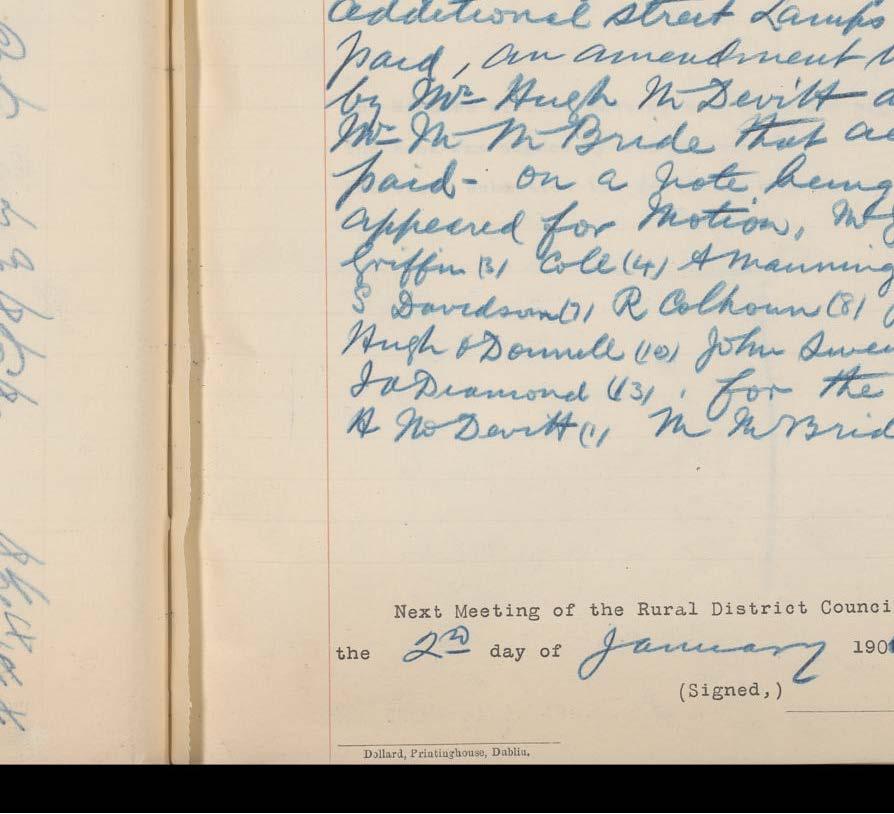 additional street Lamps
paid, an amendment
by Mr Hugh McDevitt
Mr M McBride that
paid - on a vote being
appeared for Motion, Mr
Griffin (3) Cole (4) A Manning
S Davidson (7) R Colhoun (8)
Hugh O'Donnell (10) John Swee
Ja Diamond (13), for the
H McDevitt (1) M McBrid
Next Meeting of the Rural District Counci
the 2nd day of January 190
(Signed,)
Dollard, Printinghouse, Dublin.